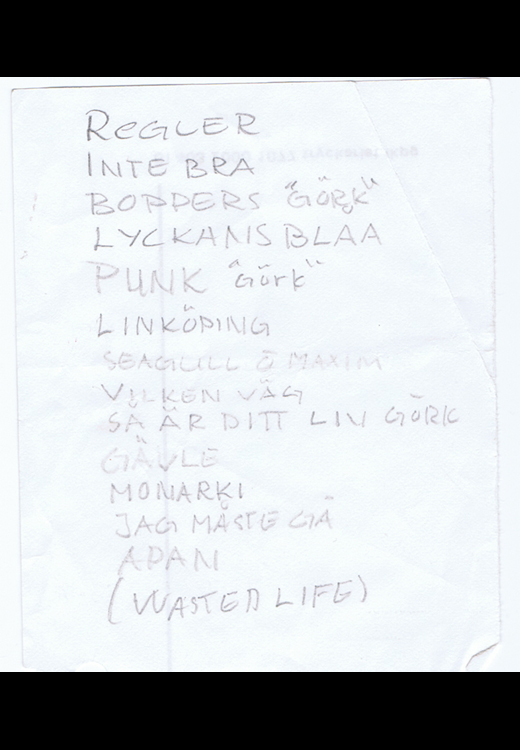 REGLER
INTE BRA
BOPPERS "GÖRK"
LYCKANS BLAA
PUNK "Görk"
LINKÖPING
SEAGULL O MAXIM
VILKEN VÄG
SÅ ÄR DITT LIV GÖRK
GÄVLE
MONARKI
JAG MÅSTE GÅ
APAN
(WASTED LIFE)